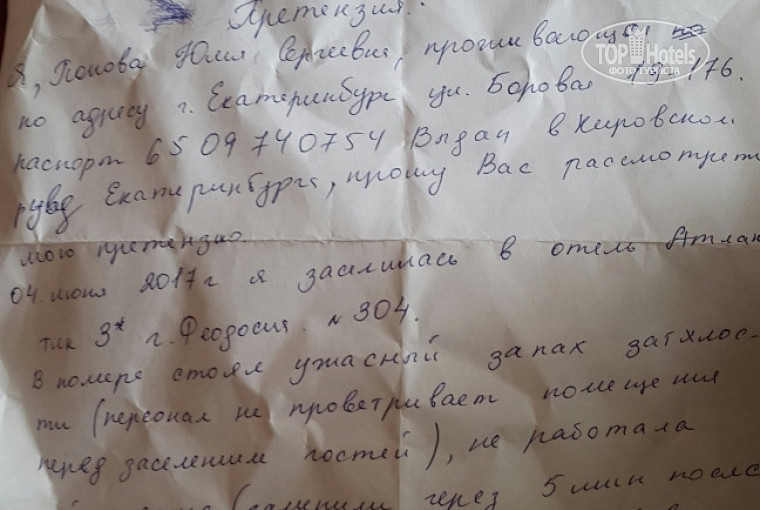 Претензия.
TOP Hotels
ФОТО ТУРИСТА
Я, Попова Юлия Сергеевна, проживающая
по адресу г. Екатеринбург ул. Боровая 176.
паспорт 65 09 740754 Выдан в Кировском
рувд Екатеринбурга, прошу Вас рассмотреть
мою претензию.
04 июня 2017 г я заселилась в отель Атлан
тик 3* г. Феодосия. N 304.
В номере стоял ужасный запах затхлос-
ти (персонал не проветривает помещения
перед заселением гостей), не работала
через 5 мин после